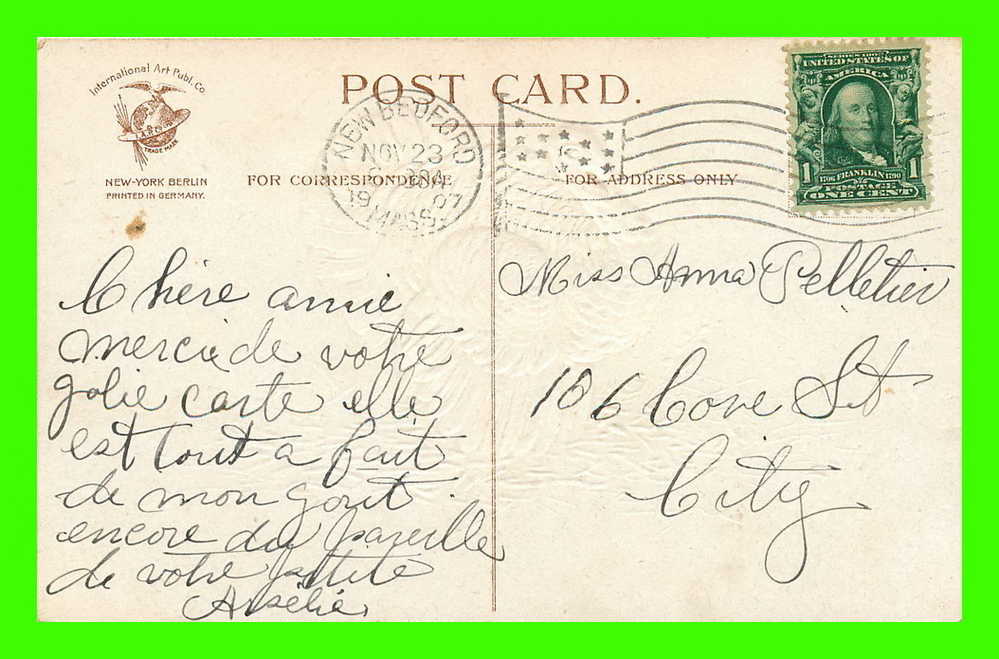 International Art Publ. Co
TRADE MARK
NEW-YORK BERLIN
PRINTED IN GERMANY.
POST CARD.
FOR CORRESPONDENCE
FOR ADDRESS ONLY
NEW BEDFORD
NOV 23
1907
MASS.
SERIES 1902
UNITED STATES OF
AMERICA
1706 FRANKLIN 1790
1 POSTAGE 1
ONE CENT
Chère amie
merci de votre
jolie carte elle
est tout a fait
de mon gout
encore du pareille
de votre petite
Miss Anna Pelletier
106 Cove St
City